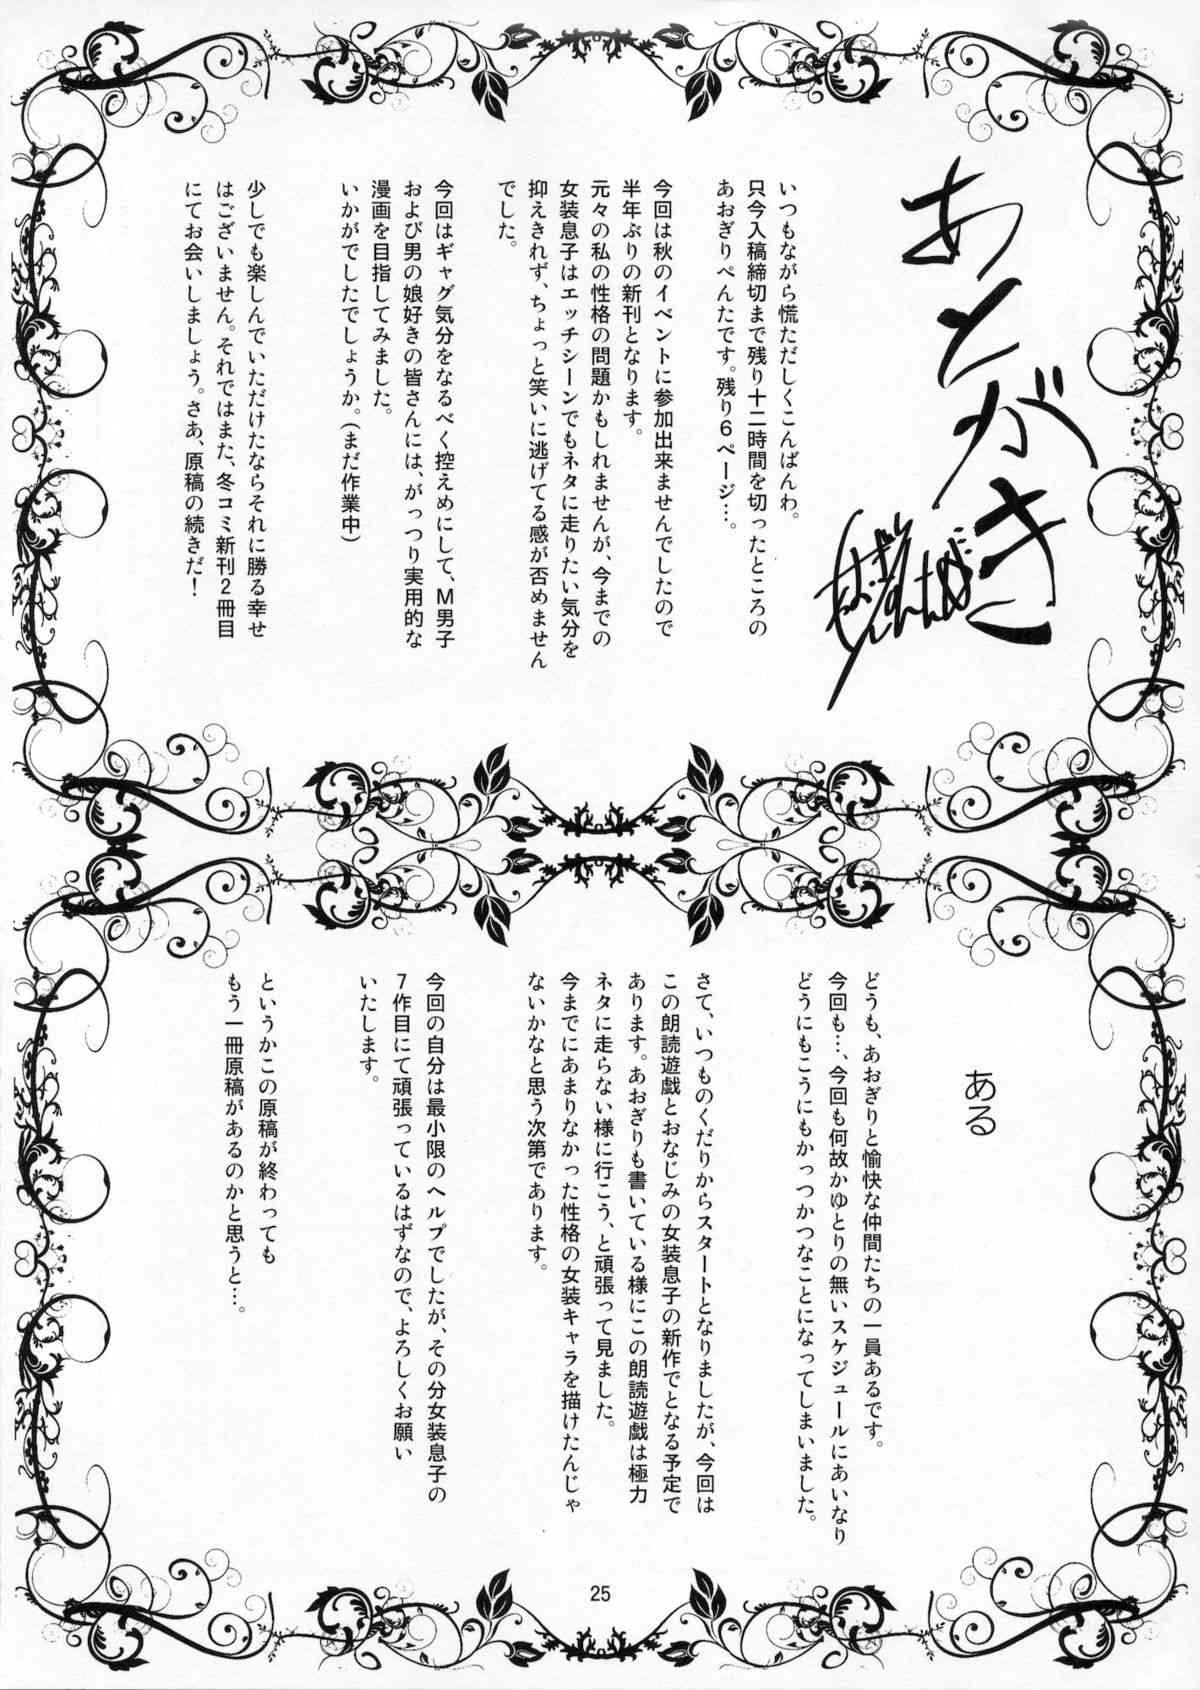 あとがき
あおぎりぺんた
いつもながら慌ただしくこんばんわ。
只今入稿締切まで残り十二時間を切ったところの
あおぎりぺんたです。残り6ページ…。
今回は秋のイベントに参加出来ませんでしたので
半年ぶりの新刊となります。
元々の私の性格の問題かもしれませんが、今までの
女装息子はエッチシーンでもネタに走りたい気分を
抑えきれず、ちょっと笑いに逃げてる感が否めません
でした。
今回はギャグ気分をなるべく控えめにして、M男子
および男の娘好きの皆さんには、がっつり実用的な
漫画を目指してみました。
いかがでしたでしょうか。(まだ作業中)
少しでも楽しんでいただけたならそれに勝る幸せ
はございません。それではまた、冬コミ新刊2冊目
にてお会いしましょう。さあ、原稿の続きだ!
ある
どうも、あおぎりと愉快な仲間たちの一員あるです。
今回も…、今回も何故かゆとりの無いスケジュールにあいなり
どうにもこうにもかっつかつなことになってしまいました。
さて、いつものくだりからスタートとなりましたが、今回は
この朗読遊戯とおなじみの女装息子の新作でとなる予定で
あります。あおぎりも書いている様にこの朗読遊戯は極力
ネタに走らない様に行こう、と頑張って見ました。
今までにあまりなかった性格の女装キャラを描けたんじゃ
ないかなと思う次第であります。
今回の自分は最小限のヘルプでしたが、その分女装息子の
7作目にて頑張っているはずなので、よろしくお願い
いたします。
というかこの原稿が終わっても
もう一冊原稿があるのかと思うと…。
25